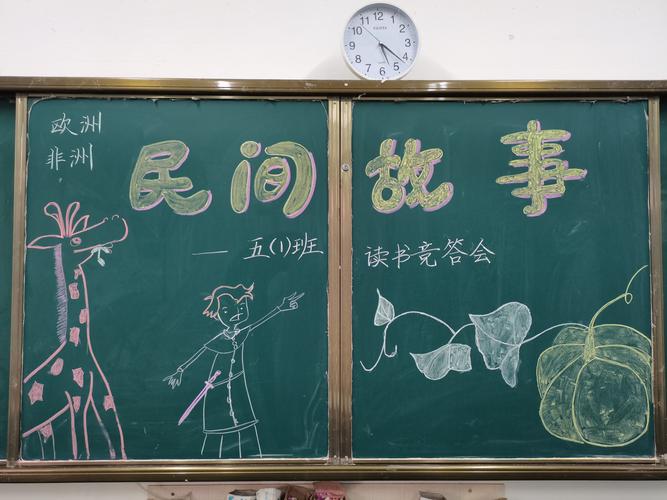 欧洲
非洲
民间故事
— 五(1)班 读书竞答会
12
1
2
3
4
5
6
7
8
9
10
11